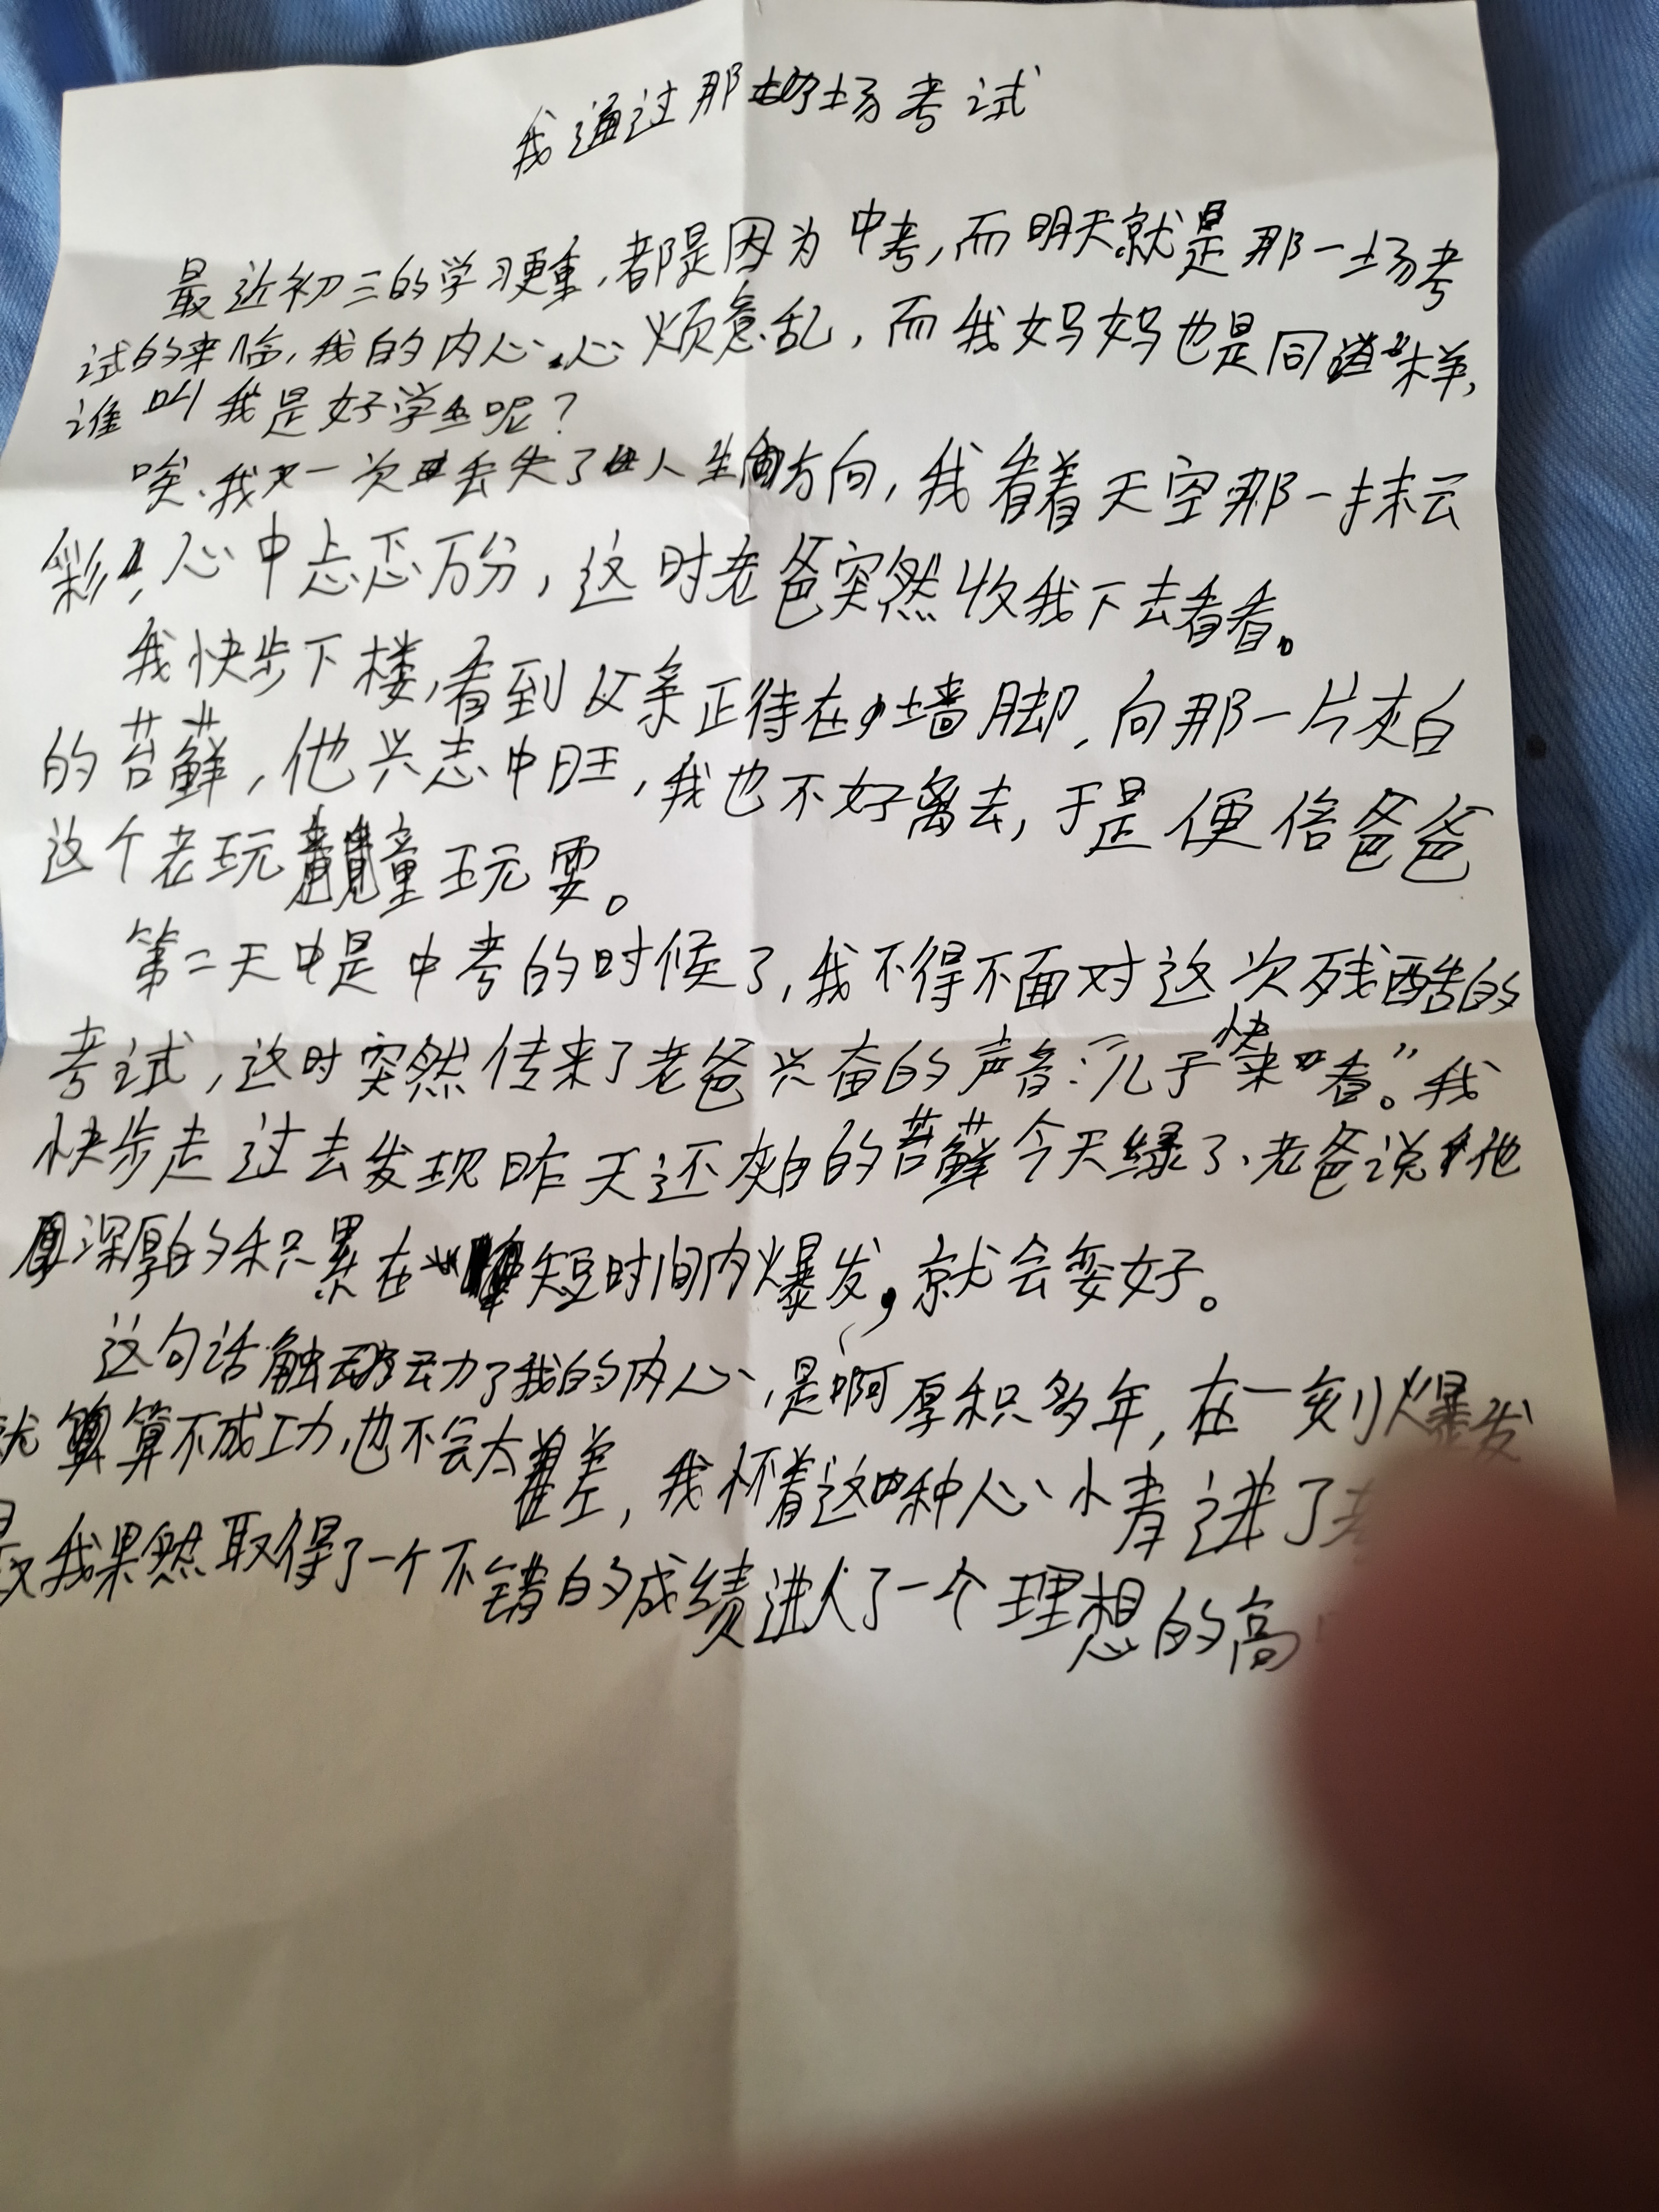 我通过那场考试
最近初三的学习更重，都是因为中考，而明天就是那一场考
试的来临，我的内心心烦意乱，而我妈妈也是同样，
谁叫我是好学生呢？
唉、我又一次丢失了人生的方向，我看着天空那一抹云
彩，心中忐忑万分，这时老爸突然收我下去看看。
我快步下楼，看到父亲正待在墙脚，向那一片灰白
的苔藓，他兴志中旺，我也不好离去，于是便倍爸爸
这个老玩童玩耍。
第二天中是中考的时候了，我不得不面对这次残酷的
考试，这时突然传来了老爸兴奋的声音：“儿子快来看。”我
快步走过去发现昨天还灰白的苔藓今天绿了、老爸说他
深厚的积累在短时间内爆发，就会变好。
这句话触动了我的内心、是啊厚积多年，在一刻爆发
就算不成功，也不会太差，我怀着这种心情进了考
我果然取得了一个不错的成绩进入了一个理想的高